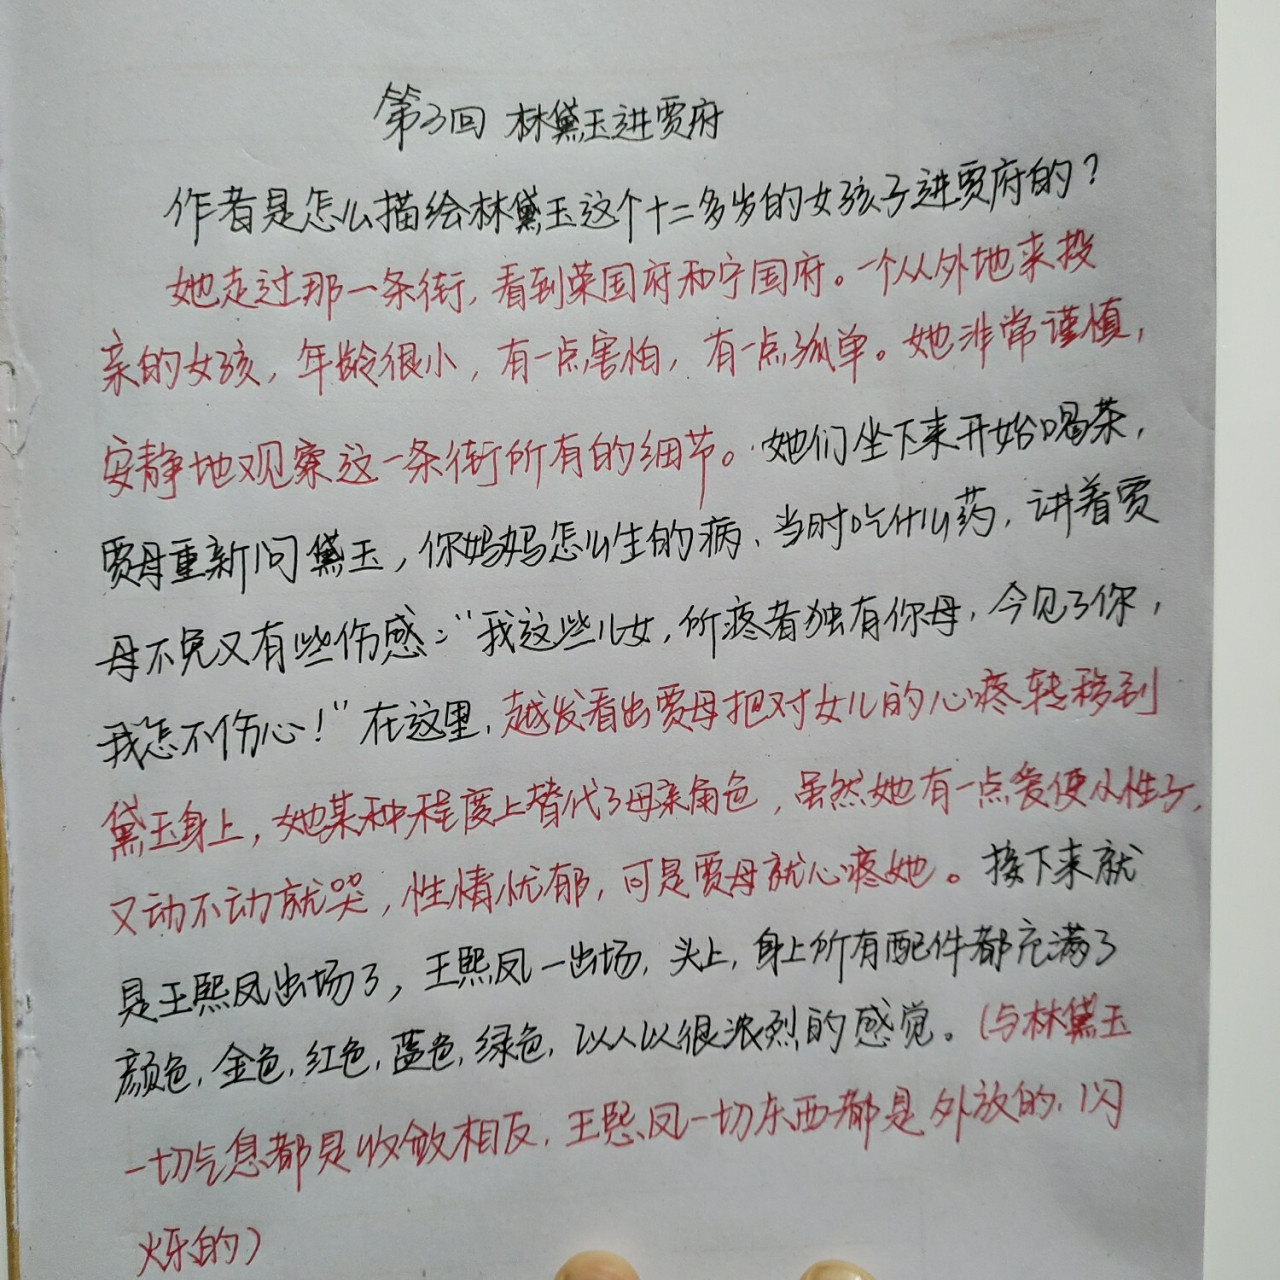 第3回 林黛玉进贾府
作者是怎么描绘林黛玉这个十二多岁的女孩子进贾府的？
她走过那一条街，看到荣国府和宁国府。一个从外地来投
亲的女孩，年龄很小，有一点害怕，有一点孤单。她非常谨慎，
安静地观察这一条街所有的细节。她们坐下来开始喝茶，
贾母重新问黛玉，你妈妈怎么生的病、当时吃什么药，讲着贾
母不免又有些伤感："我这些儿女，所疼者独有你母，今见了你，
我怎不伤心！"在这里，越发看出贾母把对女儿的心疼转移到
黛玉身上，她某种程度上替代了母亲角色，虽然她有一点爱使小性子，
又动不动就哭，性情忧郁，可是贾母就心疼她。接下来就
是王熙凤出场了，王熙凤一出场，头上，身上所有配件都充满了
颜色，金色，红色，蓝色，绿色，以人以很浓烈的感觉。（与林黛玉
一切气息都是收敛相反，王熙凤一切东西都是外放的，闪
烁的）